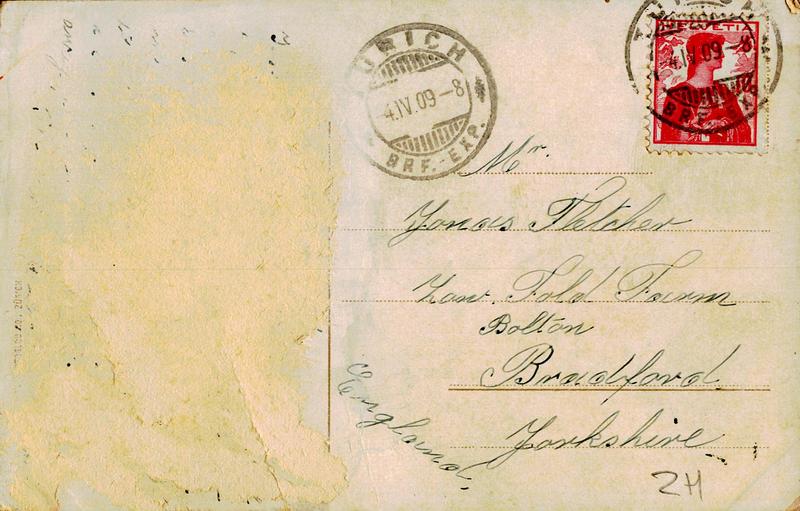 ZÜRICH
4.IV.09-8
BRF.-EXP.
HELVETIA
4.IV.09-8
BRF.-EXP.
Mr.
Jonas Fletcher
Low Fold Farm
Bolton
Bradford
Yorkshire
England
ZH